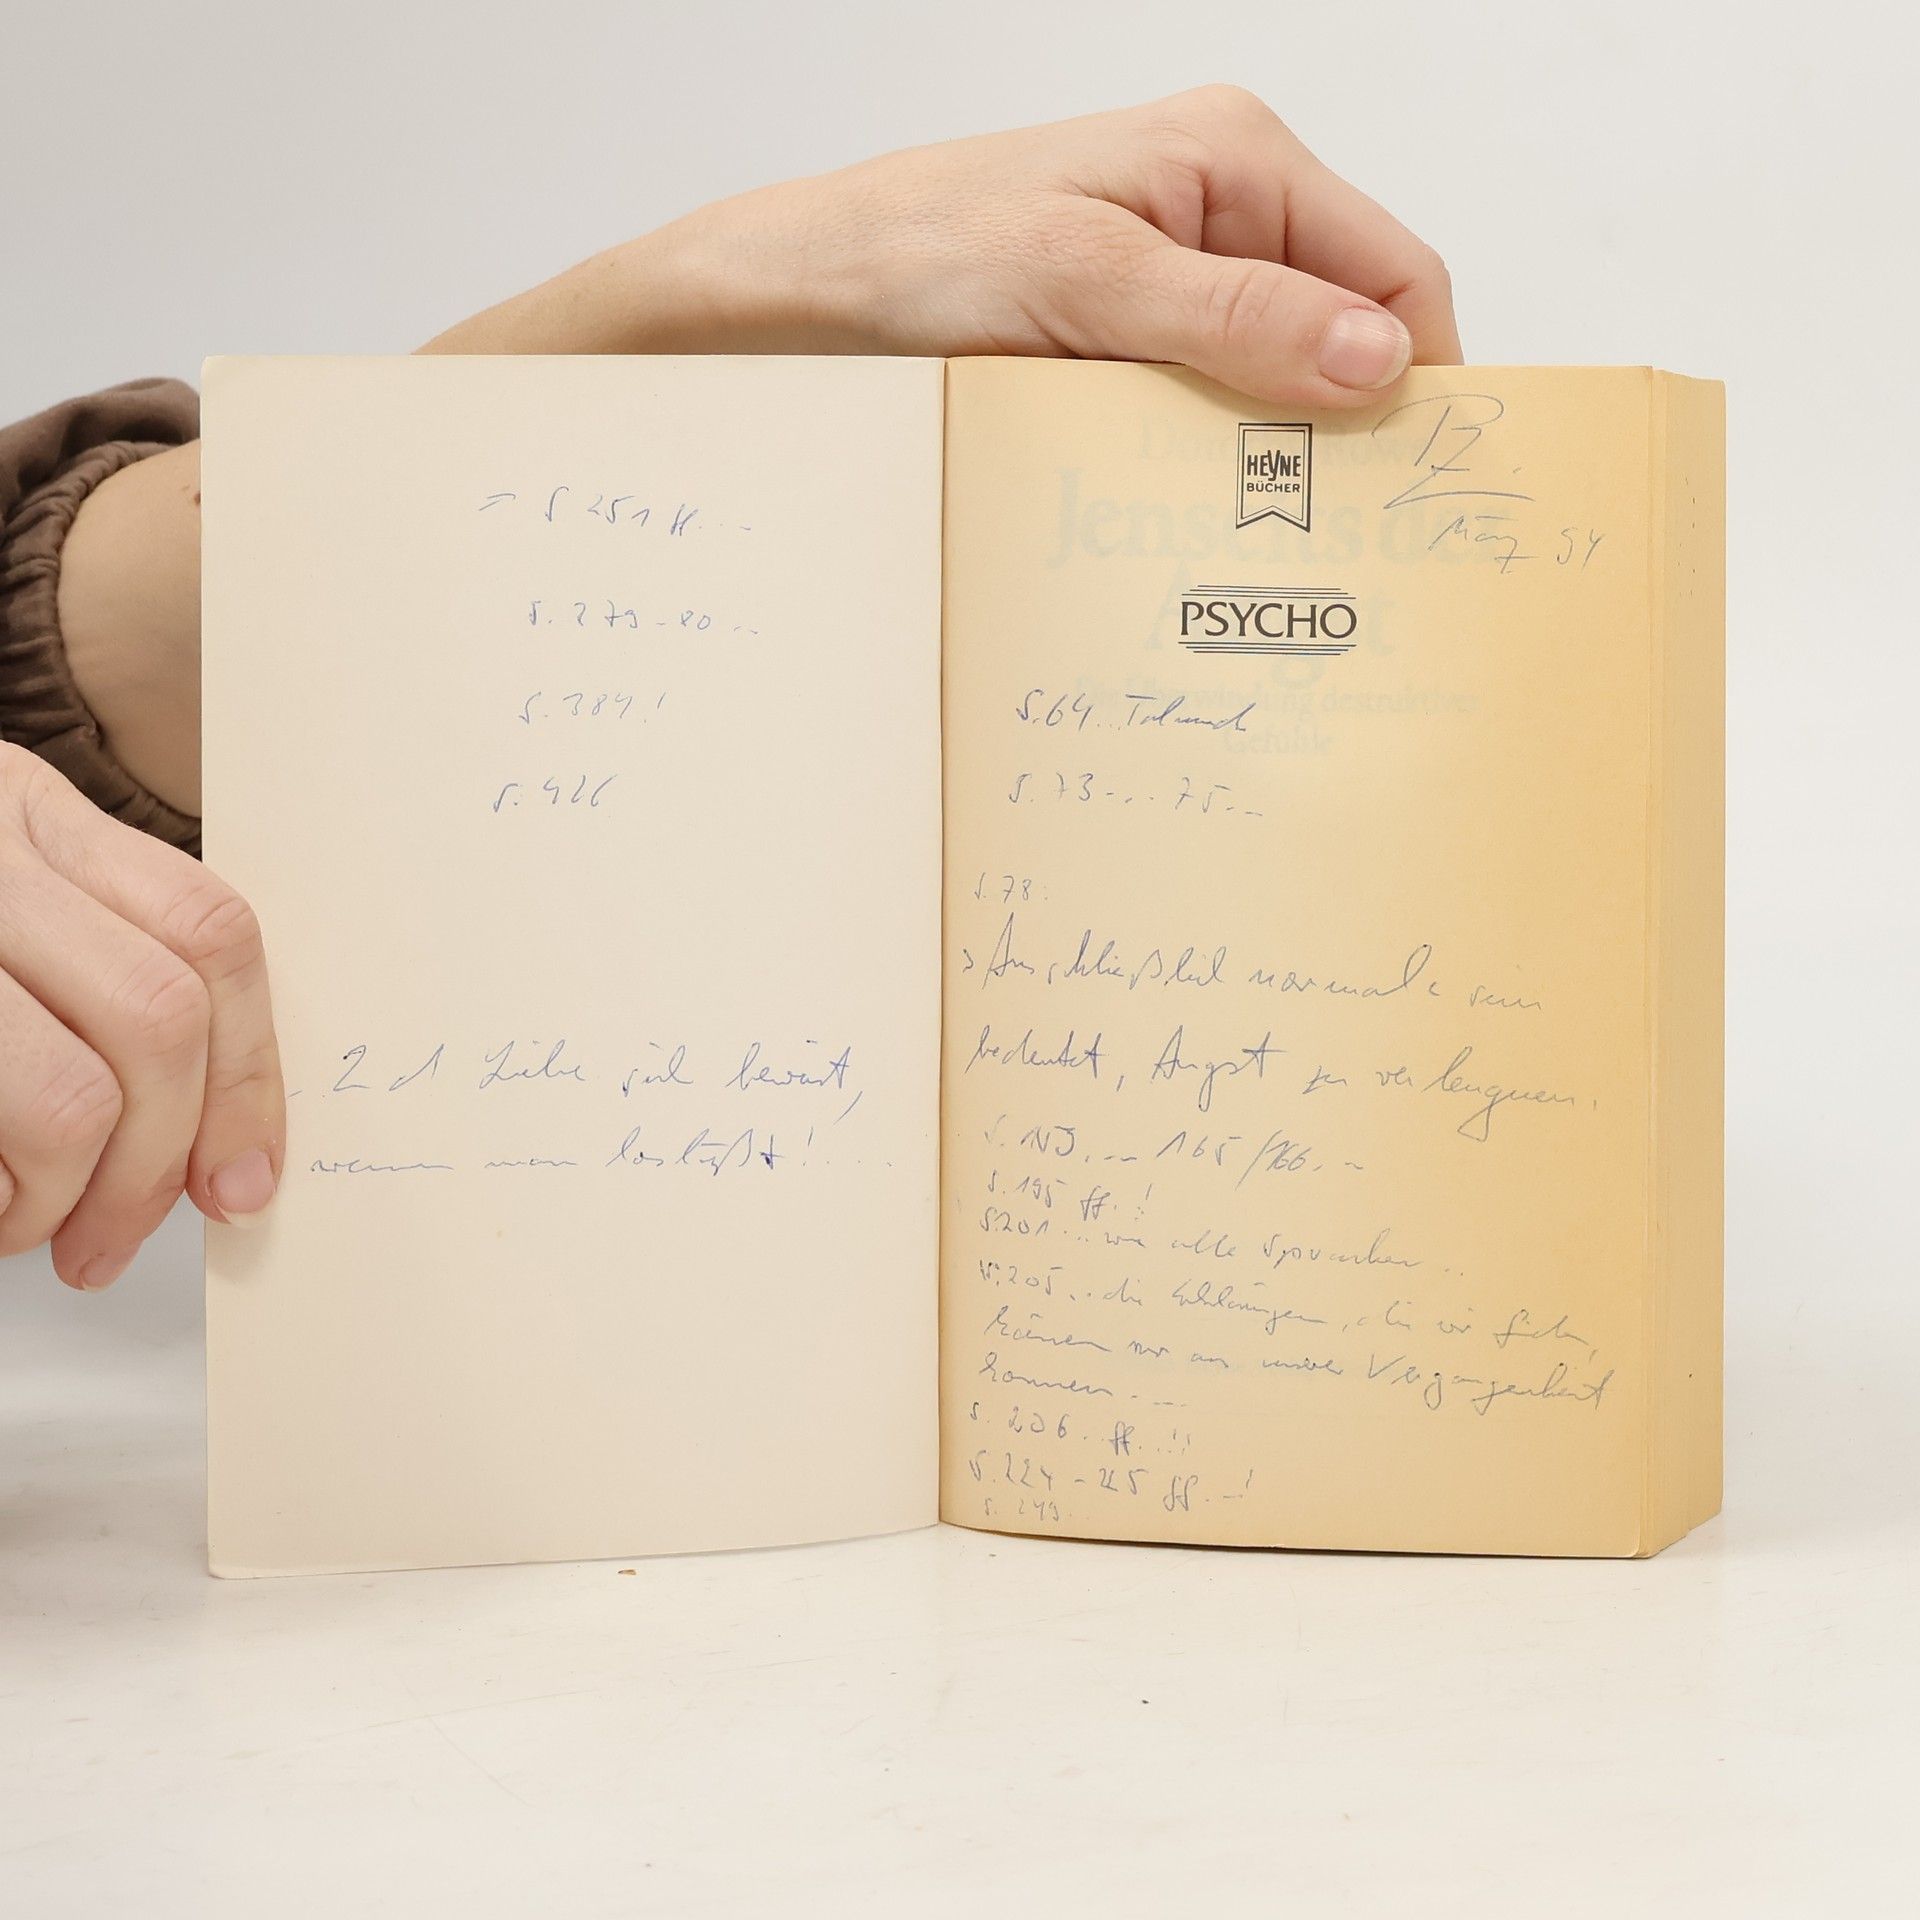 → S 251 ff...
S. 279-80..
S. 384!
S. 426
Liebe sich beweist,
wenn man losläßt!...
HEYNE
BÜCHER
März 94
PSYCHO
Jenseits der
Angst
Die Überwindung destruktiver
Gefühle
S. 64.. Talmud
S. 73... 75...
S. 78:
Ausschließlich normal sein
bedeutet, Angst zu verleugnen.
165/166...
S. 195 ff.!
S. 201... wie alle
S. 205... die Erklärungen, die wir
können nur aus unserer Vergangenheit
kommen...
S. 206.. ff..!!
S. 224-225 ff...!
S. 249..